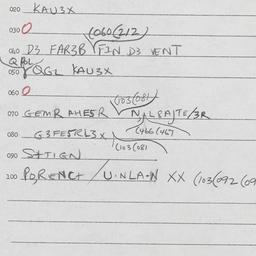 020 KAU3X
030 0
(060(212
040 D3 FAR3B FIN D3 VENT
050 QGL KAU3X
060 0
(103(081
070 GEMR AHE5R NALRAJTE/3R
(466(467
080 G3FE5RL3X
(103(081
090 S++IGN
100 PO,RENC+ / U·NLA·N XX (103(092(09